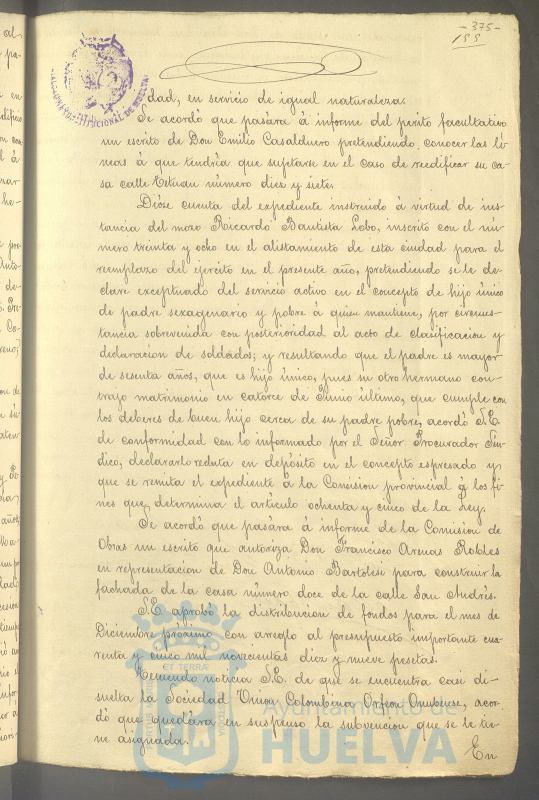 -375-
155
dad, en servicio de igual naturaleza.
Se acordó que pasára á informe del perito facultativo
un escrito de Don Emilio Casalduero pretendiendo conocer las lí
neas á que tendría que sujetarse en el caso de reedificar su ca-
sa calle Tetuan número diez y siete.
Dióse cuenta del expediente instruido á virtud de ins-
tancia del mozo Ricardo Bautista Lobo, inscrito con el nú-
mero treinta y ocho en el alistamiento de esta ciudad para el
reemplazo del ejército en el presente año, pretendiendo se le de-
clare exceptuado del servicio activo en el concepto de hijo único
de padre sexagenario y pobre á quien mantiene, por circuns-
tancia sobrevenida con posterioridad al acto de clasificacion y
declaracion de soldados; y resultando que el padre es mayor
de sesenta años, que es hijo único, pues su otro hermano con-
trajo matrimonio en catorce de Junio último, que cumple con
los deberes de buen hijo cerca de su padre pobre, acordó S.E.
de conformidad con lo informado por el Señor Procurador Sín-
dico, declararlo recluta en depósito en el concepto espresado y
que se remita el expediente á la Comision provincial á los fi-
nes que determina el artículo ochenta y cinco de la Ley.
Se acordó que pasára á informe de la Comision de
Obras un escrito que autoriza Don Francisco Arenas Robles
en representacion de Don Antonio Bartolesi para construir la
fachada de la casa número doce de la calle San Andrés.
S.E. aprobó la distribucion de fondos para el mes de
Diciembre próximo con arreglo al presupuesto importante cua-
renta y cinco mil novecientas diez y nueve pesetas.
Teniendo noticia S.E. de que se encuentra casi di-
suelta la Sociedad Union Colombina Orfeon Onubense, acor-
dó que quedára en suspenso la subvencion que se le tie-
ne asignada.
En
Ayuntamiento de
HUELVA